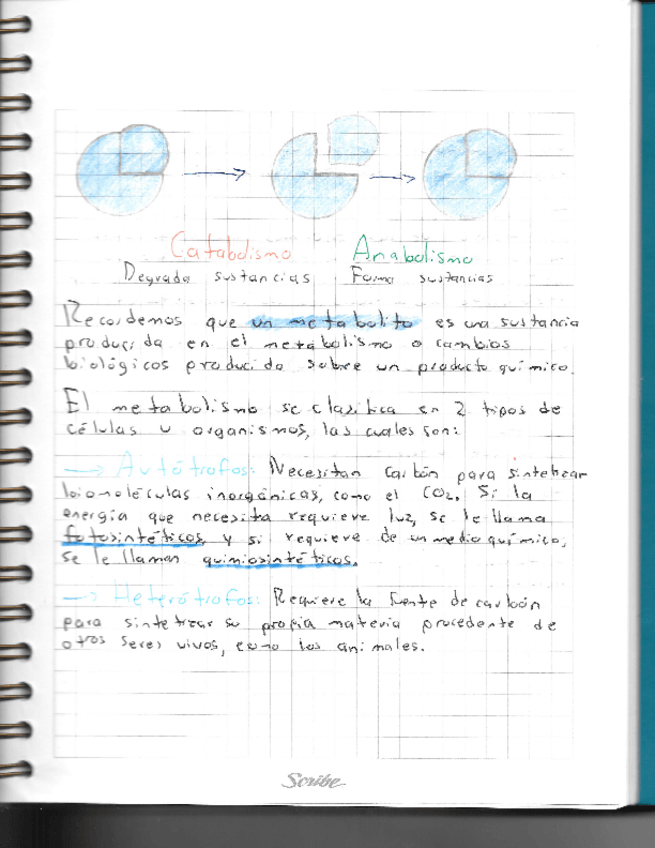 Catabolismo Anabolismo
Degrada sustancias Forma sustancias
Recordemos que un metabolito es una sustancia
producida en el metabolismo o cambios
biológicos producido sobre un producto químico.
El metabolismo se clasifica en 2 tipos de
células u organismos, las cuales son:
→ Autótrofos: Necesitan carbón para sintetizar
biomoléculas inorgánicas, como el CO₂. Si la
energía que necesita requiere luz, se le llama
fotosintéticos, y si requiere de un medio químico,
se le llaman quimiosintéticos.
→ Heterótrofos: Requiere la fuente de carbón
para sintetizar su propia materia procedente de
otros seres vivos, como los animales.
Scribe